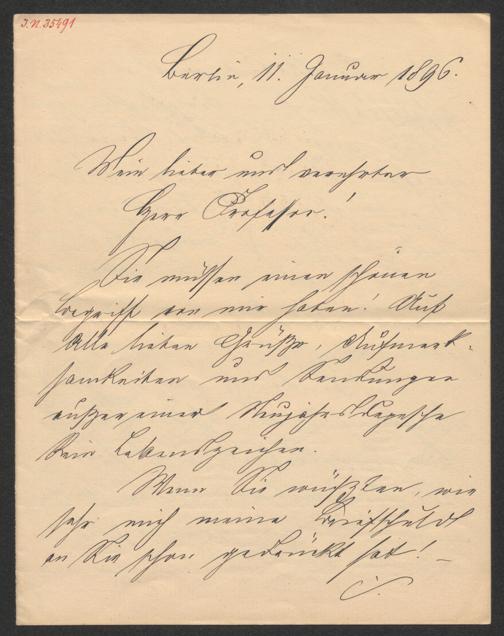 I.N. 35491
Berlin, 11. Januar 1896.
Mein lieber und verehrter
Herr Professor!
Sie müssen einen schönen
Begriff von mir haben! Auf
alle lieben Grüße, Aufmerk-
samkeiten und Sendungen
außer einer Neujahrsdepesche
kein Lebenszeichen.
Wenn Sie wüßten, wie
sehr mich meine Briefschuld
an Sie schon gedrückt hat! –